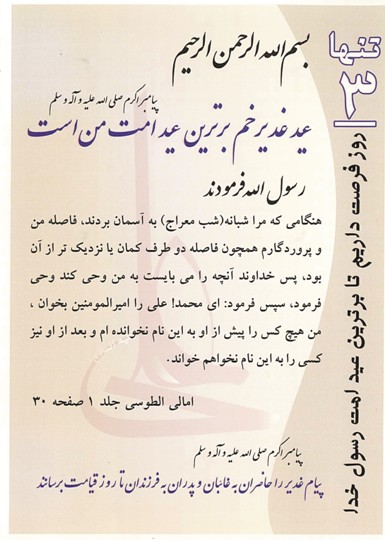 بسم الله الرحمن الرحیم
پیامبر اکرم صلی الله علیه و آله و سلم
عید غدیر خم برترین عید امت من است
رسول الله فرمودند
هنگامی که مرا شبانه(شب معراج) به آسمان بردند، فاصله من
و پروردگارم همچون فاصله دو طرف کمان یا نزدیک تر از آن
بود، پس خداوند آنچه را می بایست به من وحی کند وحی
فرمود، سپس فرمود: ای محمد! علی را امیرالمومنین بخوان ،
من هیچ کس را پیش از او به این نام نخوانده ام و بعد از او نیز
کسی را به این نام نخواهم خواند.
امالی الطوسی جلد ۱ صفحه ۳۰
پیامبر اکرم صلی الله علیه و آله و سلم
پیام غدیر را حاضران به غائبان و پدران به فرزندان تا روز قیامت برسانند
تنها
روز فرصت داریم تا برترین عید امت رسول خدا